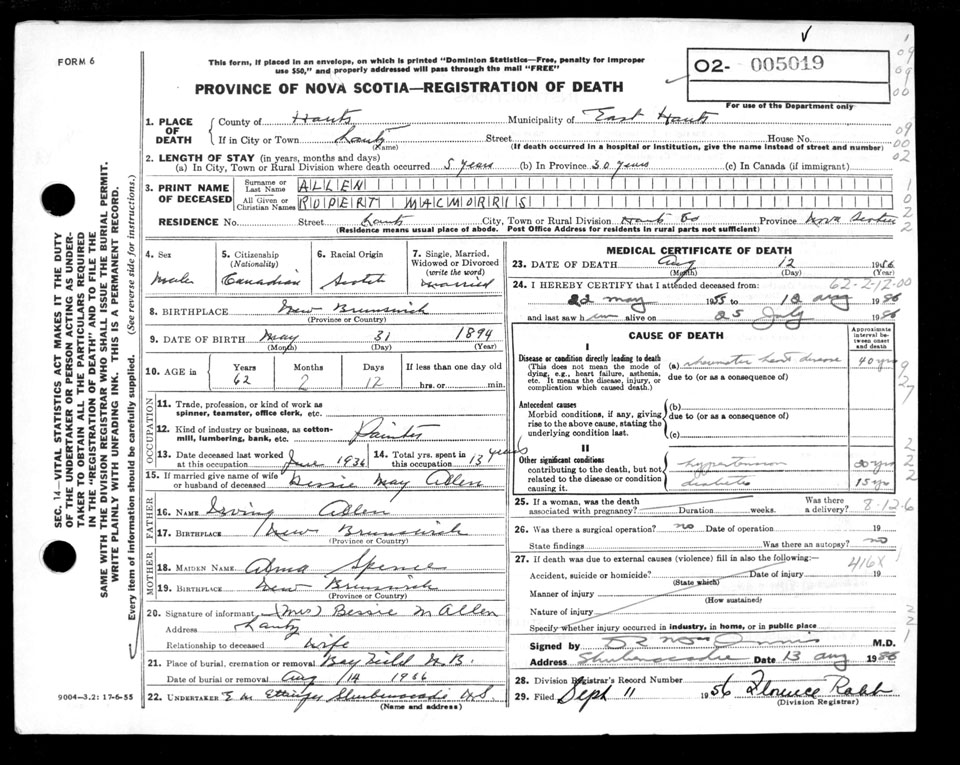 FORM 6
This form, if placed in an envelope, on which is printed "Dominion Statistics—Free, penalty for improper
use $50," and properly addressed will pass through the mail "FREE"
O2- 005019
PROVINCE OF NOVA SCOTIA—REGISTRATION OF DEATH
For use of the Department only
1. PLACE OF DEATH
County of Hants Municipality of East Hants
If in City or Town Lantz Street House No.
(Name) (If death occurred in a hospital or institution, give the name instead of street and number)
2. LENGTH OF STAY (in years, months and days)
(a) In City, Town or Rural Division where death occurred 5 years (b) In Province 30 years (c) In Canada (if immigrant)
3. PRINT NAME OF DECEASED
Surname or Last Name ALLEN
All Given or Christian Names ROBERT MACMORRIS
RESIDENCE No. Street Lantz City, Town or Rural Division Hants Co Province Nova Scotia
(Residence means usual place of abode. Post Office Address for residents in rural parts not sufficient)
4. Sex Male
5. Citizenship (Nationality) Canadian
6. Racial Origin Scotch
7. Single, Married, Widowed or Divorced (write the word) married
8. BIRTHPLACE New Brunswick
(Province or Country)
9. DATE OF BIRTH May 31 1894
(Month) (Day) (Year)
10. AGE in Years Months Days If less than one day old
62 2 12 hrs. or min.
OCCUPATION
11. Trade, profession, or kind of work as
spinner, teamster, office clerk, etc.
12. Kind of industry or business, as cotton-
mill, lumbering, bank, etc. Painter
13. Date deceased last worked at this occupation June 1936
14. Total yrs. spent in this occupation 13 years
15. If married give name of wife
or husband of deceased Bessie May Allen
FATHER
16. NAME Irving Allen
17. BIRTHPLACE New Brunswick
(Province or Country)
MOTHER
18. MAIDEN NAME Alma Spence
19. BIRTHPLACE New Brunswick
(Province or Country)
20. Signature of informant (Mrs) Bessie M Allen
Address Lantz
Relationship to deceased wife
21. Place of burial, cremation or removal Bayfield N.B.
Date of burial or removal Aug 14
22. UNDERTAKER E M Ettinger Shubenacadie N.S.
(Name and address)
MEDICAL CERTIFICATE OF DEATH
23. DATE OF DEATH Aug 12 1956
(Month) (Day) (Year)
24. I HEREBY CERTIFY that I attended deceased from: 62-2-12-00
22 May 1955 to 12 Aug 1956
and last saw him alive on 25 July 1956
CAUSE OF DEATH
Approximate interval between onset and death
I
Disease or condition directly leading to death
(This does not mean the mode of dying, e.g., heart failure, asthenia, etc. It means the disease, injury, or complication which caused death.)
(a) rheumatic heart disease 40 yrs
due to (or as a consequence of)
Antecedent causes
Morbid conditions, if any, giving rise to the above cause, stating the underlying condition last.
(b)
due to (or as a consequence of)
(c)
II
Other significant conditions
contributing to the death, but not related to the disease or condition causing it.
hypertension 20 yrs
diabetes 15 yrs
25. If a woman, was the death associated with pregnancy? Duration weeks. Was there a delivery? 8-12-6
26. Was there a surgical operation? no Date of operation 19
State findings Was there an autopsy? no
27. If death was due to external causes (violence) fill in also the following:— 416X
Accident, suicide or homicide? Date of injury 19
(State which)
Manner of injury
(How sustained)
Nature of injury
Specify whether injury occurred in industry, in home, or in public place
Signed by M.D.
Address Shubenacadie Date 13 Aug 1956
28. Division Registrar's Record Number
29. Filed Sept 11 1956 Florence Robb
(Division Registrar)
SEC. 14—VITAL STATISTICS ACT MAKES IT THE DUTY
OF THE UNDERTAKER OR PERSON ACTING AS UNDER-
TAKER TO OBTAIN ALL THE PARTICULARS REQUIRED
IN THE "REGISTRATION OF DEATH" AND TO FILE THE
SAME WITH THE DIVISION REGISTRAR WHO SHALL ISSUE THE BURIAL PERMIT.
WRITE PLAINLY WITH UNFADING INK. THIS IS A PERMANENT RECORD.
Every item of information should be carefully supplied. (See reverse side for instructions.)
9004—3.2: 17-6-55